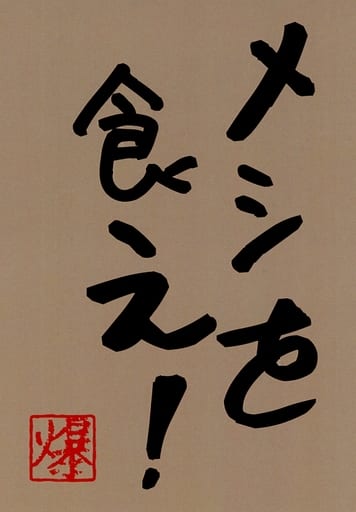 メシを
食え!
爆